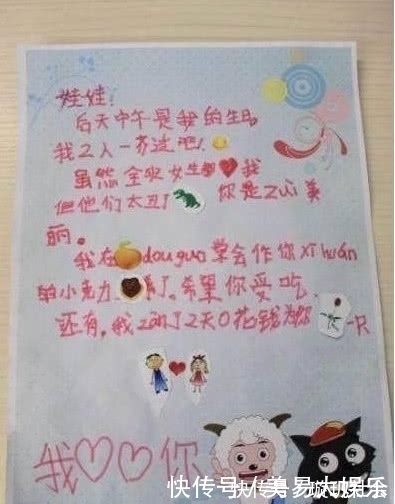 娃娃!
后天中午是我的生日,
我2人一齐过吧!
虽然全班女生都 我
但他们太丑了 你是Zui美
丽。
我在 douguo学会作你xǐ huān
的小克力 了。希望你爱吃
还有,我 了2天0花钱为你 一只
我♡♡你
快传号/美易大娱乐